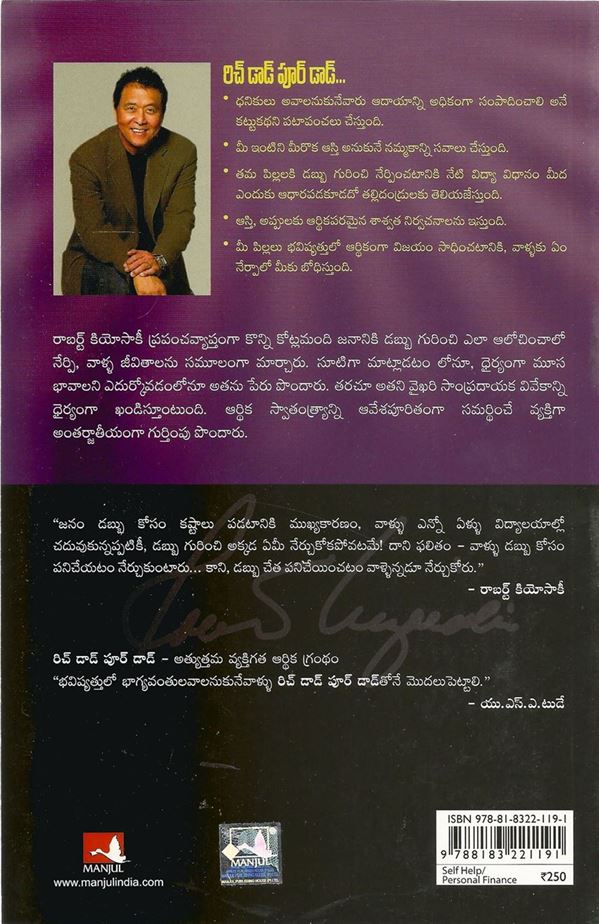 రిచ్ డాడ్ పూర్ డాడ్...
• ధనికులు అవాలనుకునేవారు ఆదాయాన్ని అధికంగా సంపాదించాలి అనే
కట్టుకథని పటాపంచలు చేస్తుంది.
• మీ ఇంటిని మీరొక ఆస్తి అనుకునే నమ్మకాన్ని సవాలు చేస్తుంది.
• తమ పిల్లలకి డబ్బు గురించి నేర్పించటానికి నేటి విద్యా విధానం మీద
ఎందుకు ఆధారపడకూడదో తల్లిదండ్రులకు తెలియజేస్తుంది.
• ఆస్తి, అప్పులకు ఆర్థికపరమైన శాశ్వత నిర్వచనాలను ఇస్తుంది.
• మీ పిల్లలు భవిష్యత్తులో ఆర్థికంగా విజయం సాధించటానికి, వాళ్ళకు ఏం
నేర్పాలో మీకు బోధిస్తుంది.
రాబర్ట్ కియోసాకీ ప్రపంచవ్యాప్తంగా కొన్ని కోట్లమంది జనానికి డబ్బు గురించి ఎలా ఆలోచించాలో
నేర్పి, వాళ్ళ జీవితాలను సమూలంగా మార్చారు. సూటిగా మాట్లాడటం లోనూ, ధైర్యంగా మూస
భావాలని ఎదుర్కోవడంలోనూ అతను పేరు పొందారు. తరచూ అతని వైఖరి సాంప్రదాయక వివేకాన్ని
ధైర్యంగా ఖండిస్తూంటుంది. ఆర్థిక స్వాతంత్ర్యాన్ని ఆవేశపూరితంగా సమర్థించే వ్యక్తిగా
అంతర్జాతీయంగా గుర్తింపు పొందారు.
“జనం డబ్బు కోసం కష్టాలు పడటానికి ముఖ్యకారణం, వాళ్ళు ఎన్నో ఏళ్ళు విద్యాలయాల్లో
చదువుకున్నప్పటికీ, డబ్బు గురించి అక్కడ ఏమీ నేర్చుకోకపోవటమే! దాని ఫలితం – వాళ్ళు డబ్బు కోసం
పనిచేయటం నేర్చుకుంటారు... కాని, డబ్బు చేత పనిచేయించటం వాళ్ళెన్నడూ నేర్చుకోరు.”
– రాబర్ట్ కియోసాకీ
రిచ్ డాడ్ పూర్ డాడ్ – అత్యుత్తమ వ్యక్తిగత ఆర్థిక గ్రంథం
“భవిష్యత్తులో భాగ్యవంతులవాలనుకునేవాళ్ళు రిచ్ డాడ్ పూర్ డాడ్‌తోనే మొదలుపెట్టాలి.”
– యు.ఎస్.ఎ.టుడే
MANJUL
www.manjulindia.com
MANJUL
ISBN 978-81-8322-119-1
9 788183 221191
Self Help/
Personal Finance
₹250